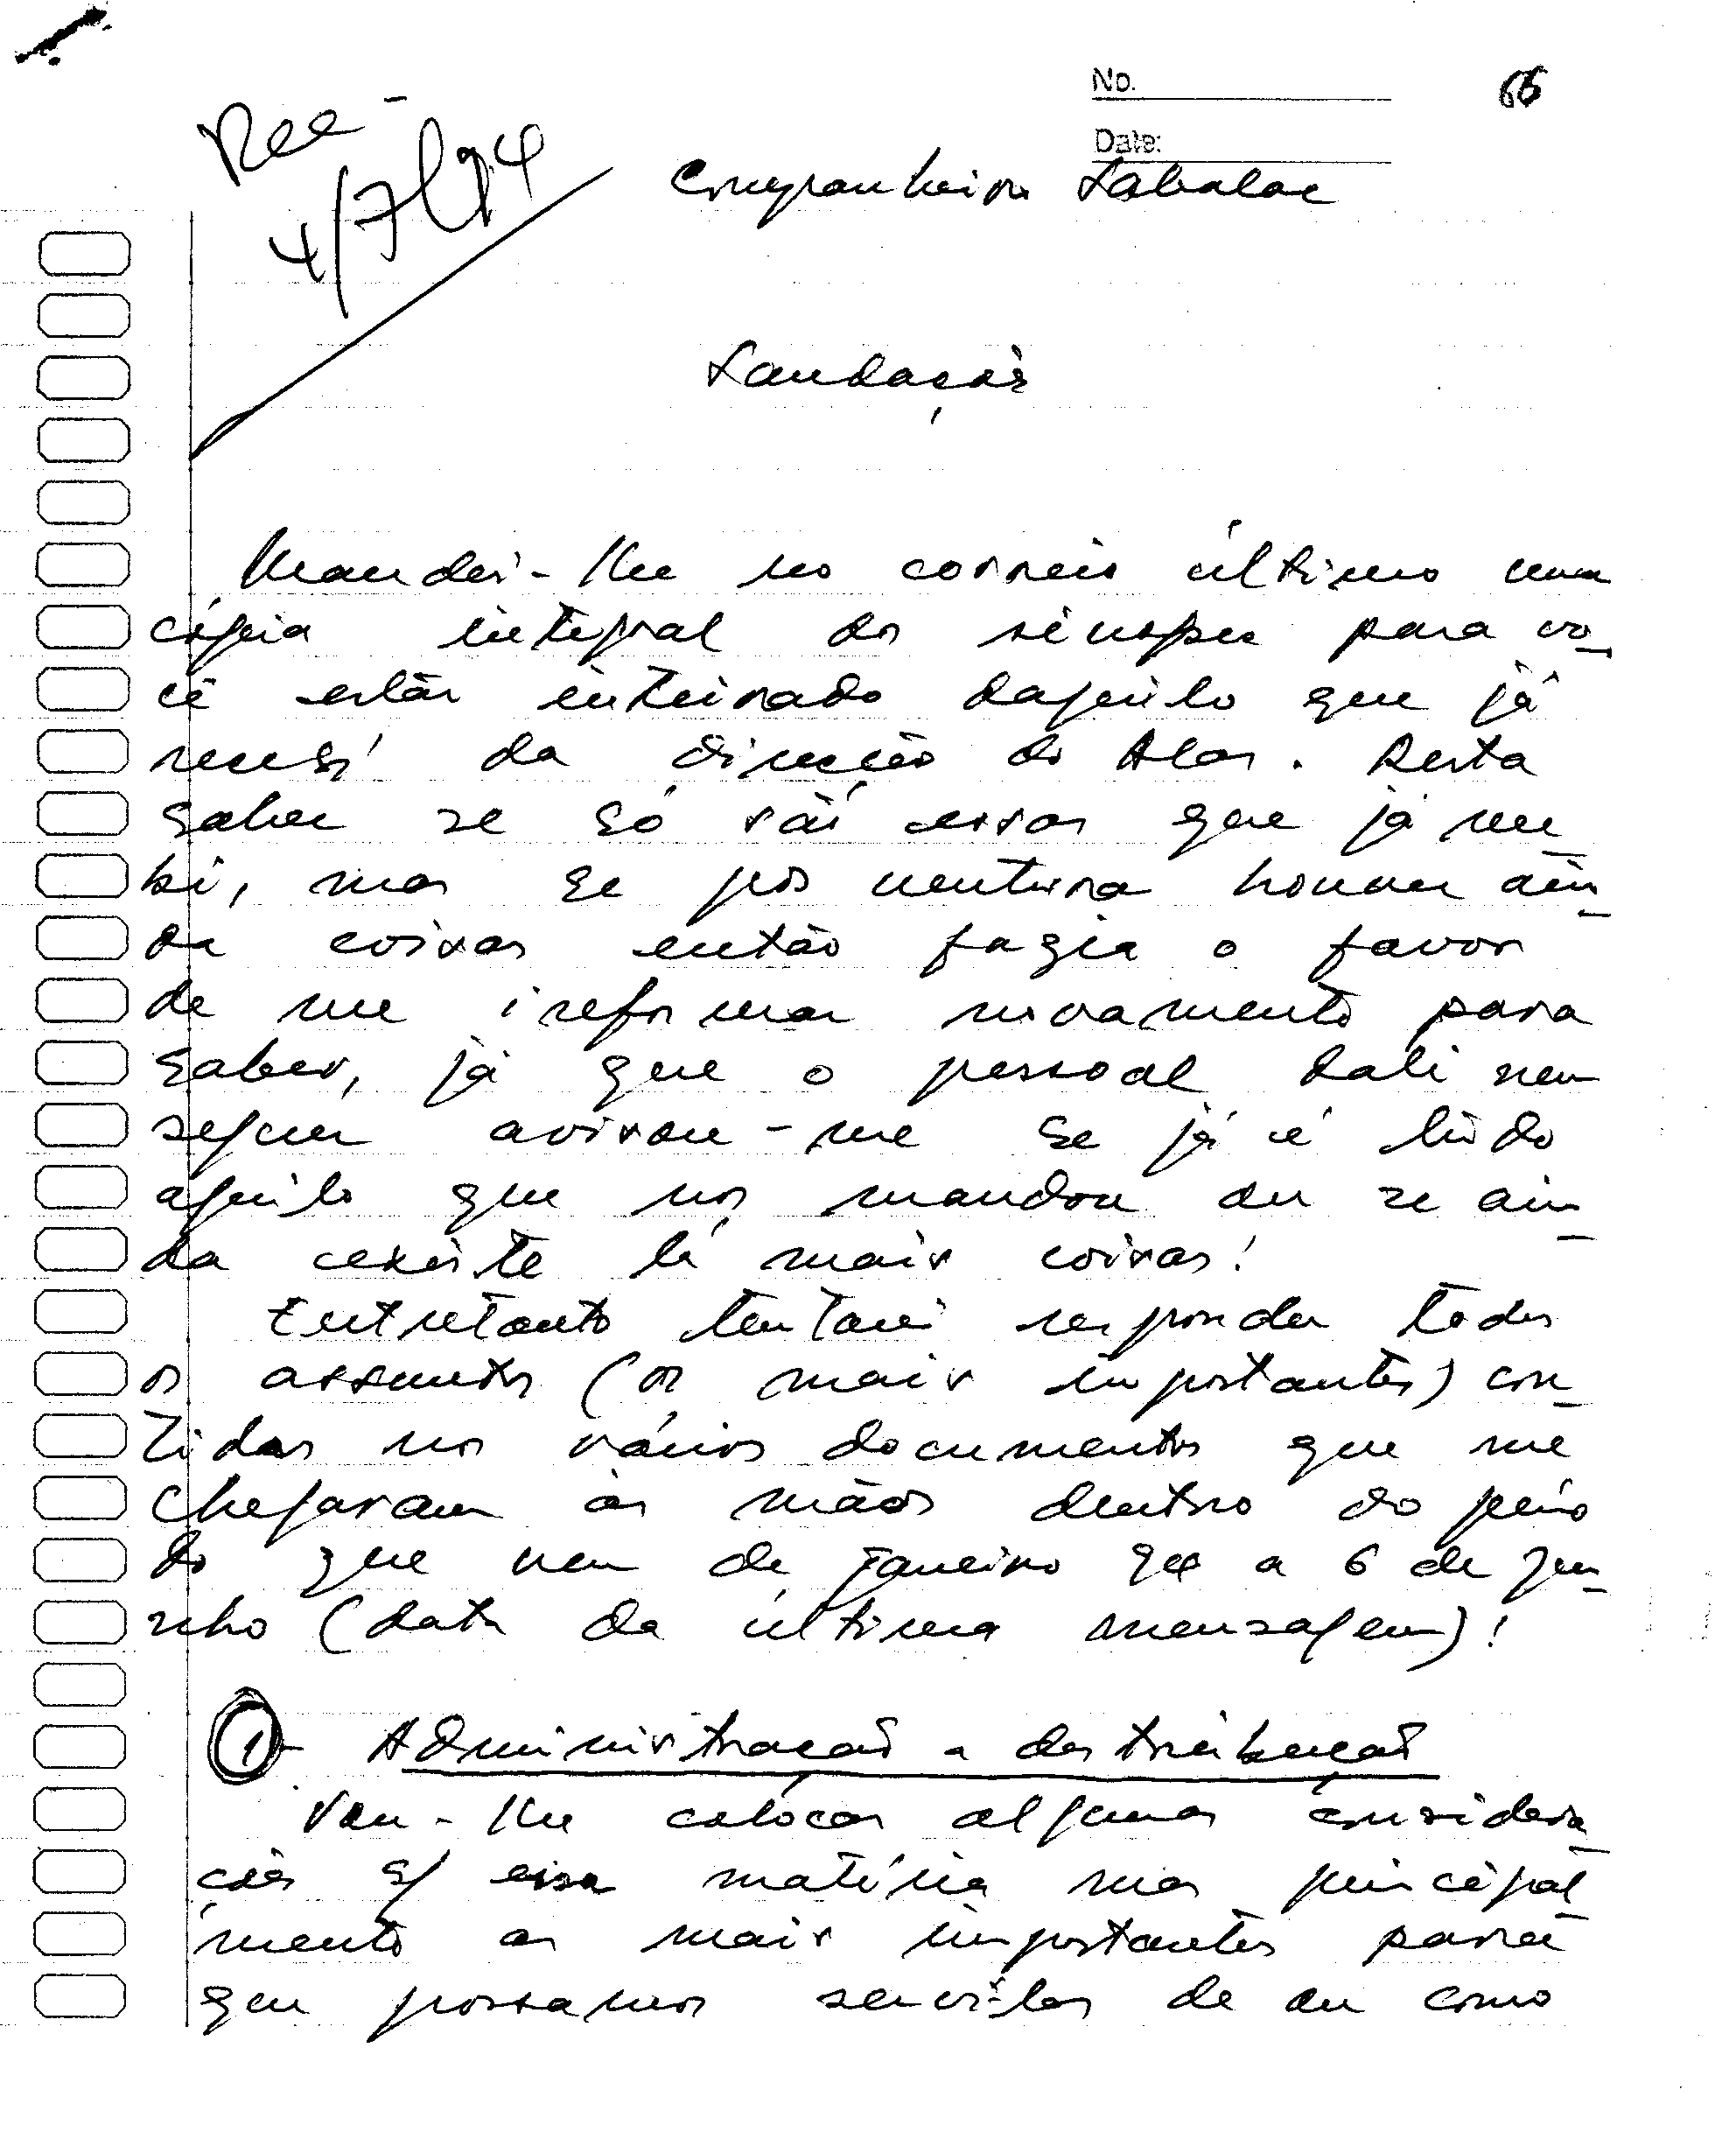 No. 66
Date:
Rec -
4/7/94
Companheiro Sabalae
Saudações
Mandei-lhe no correio último uma
cópia integral da sinopse para vo-
cê estar inteirado daquilo que já
recebi da direcção do Alar. Resta
saber se só são essas que já rece
bi, mas se por ventura houver ain-
da coisas então fazia o favor
de me informar novamente para
saber, já que o pessoal dali nem
sequer avisou-me se já é tudo
aquilo que nos mandou ou se ain-
da existe lá mais coisas!
Entretanto tentarei responder todos
os assuntos (os mais importantes) con-
tidos nos vários documentos que me
chegaram às mãos dentro do perío
do que vem de janeiro 94 a 6 de Ju-
nho (data da última mensagem)!
1- Administração - distribuição
Vou-lhe colocar algumas considera-
ções s/ essa matéria mas principal-
mente as mais importantes para
que possamos servi-las de ou como